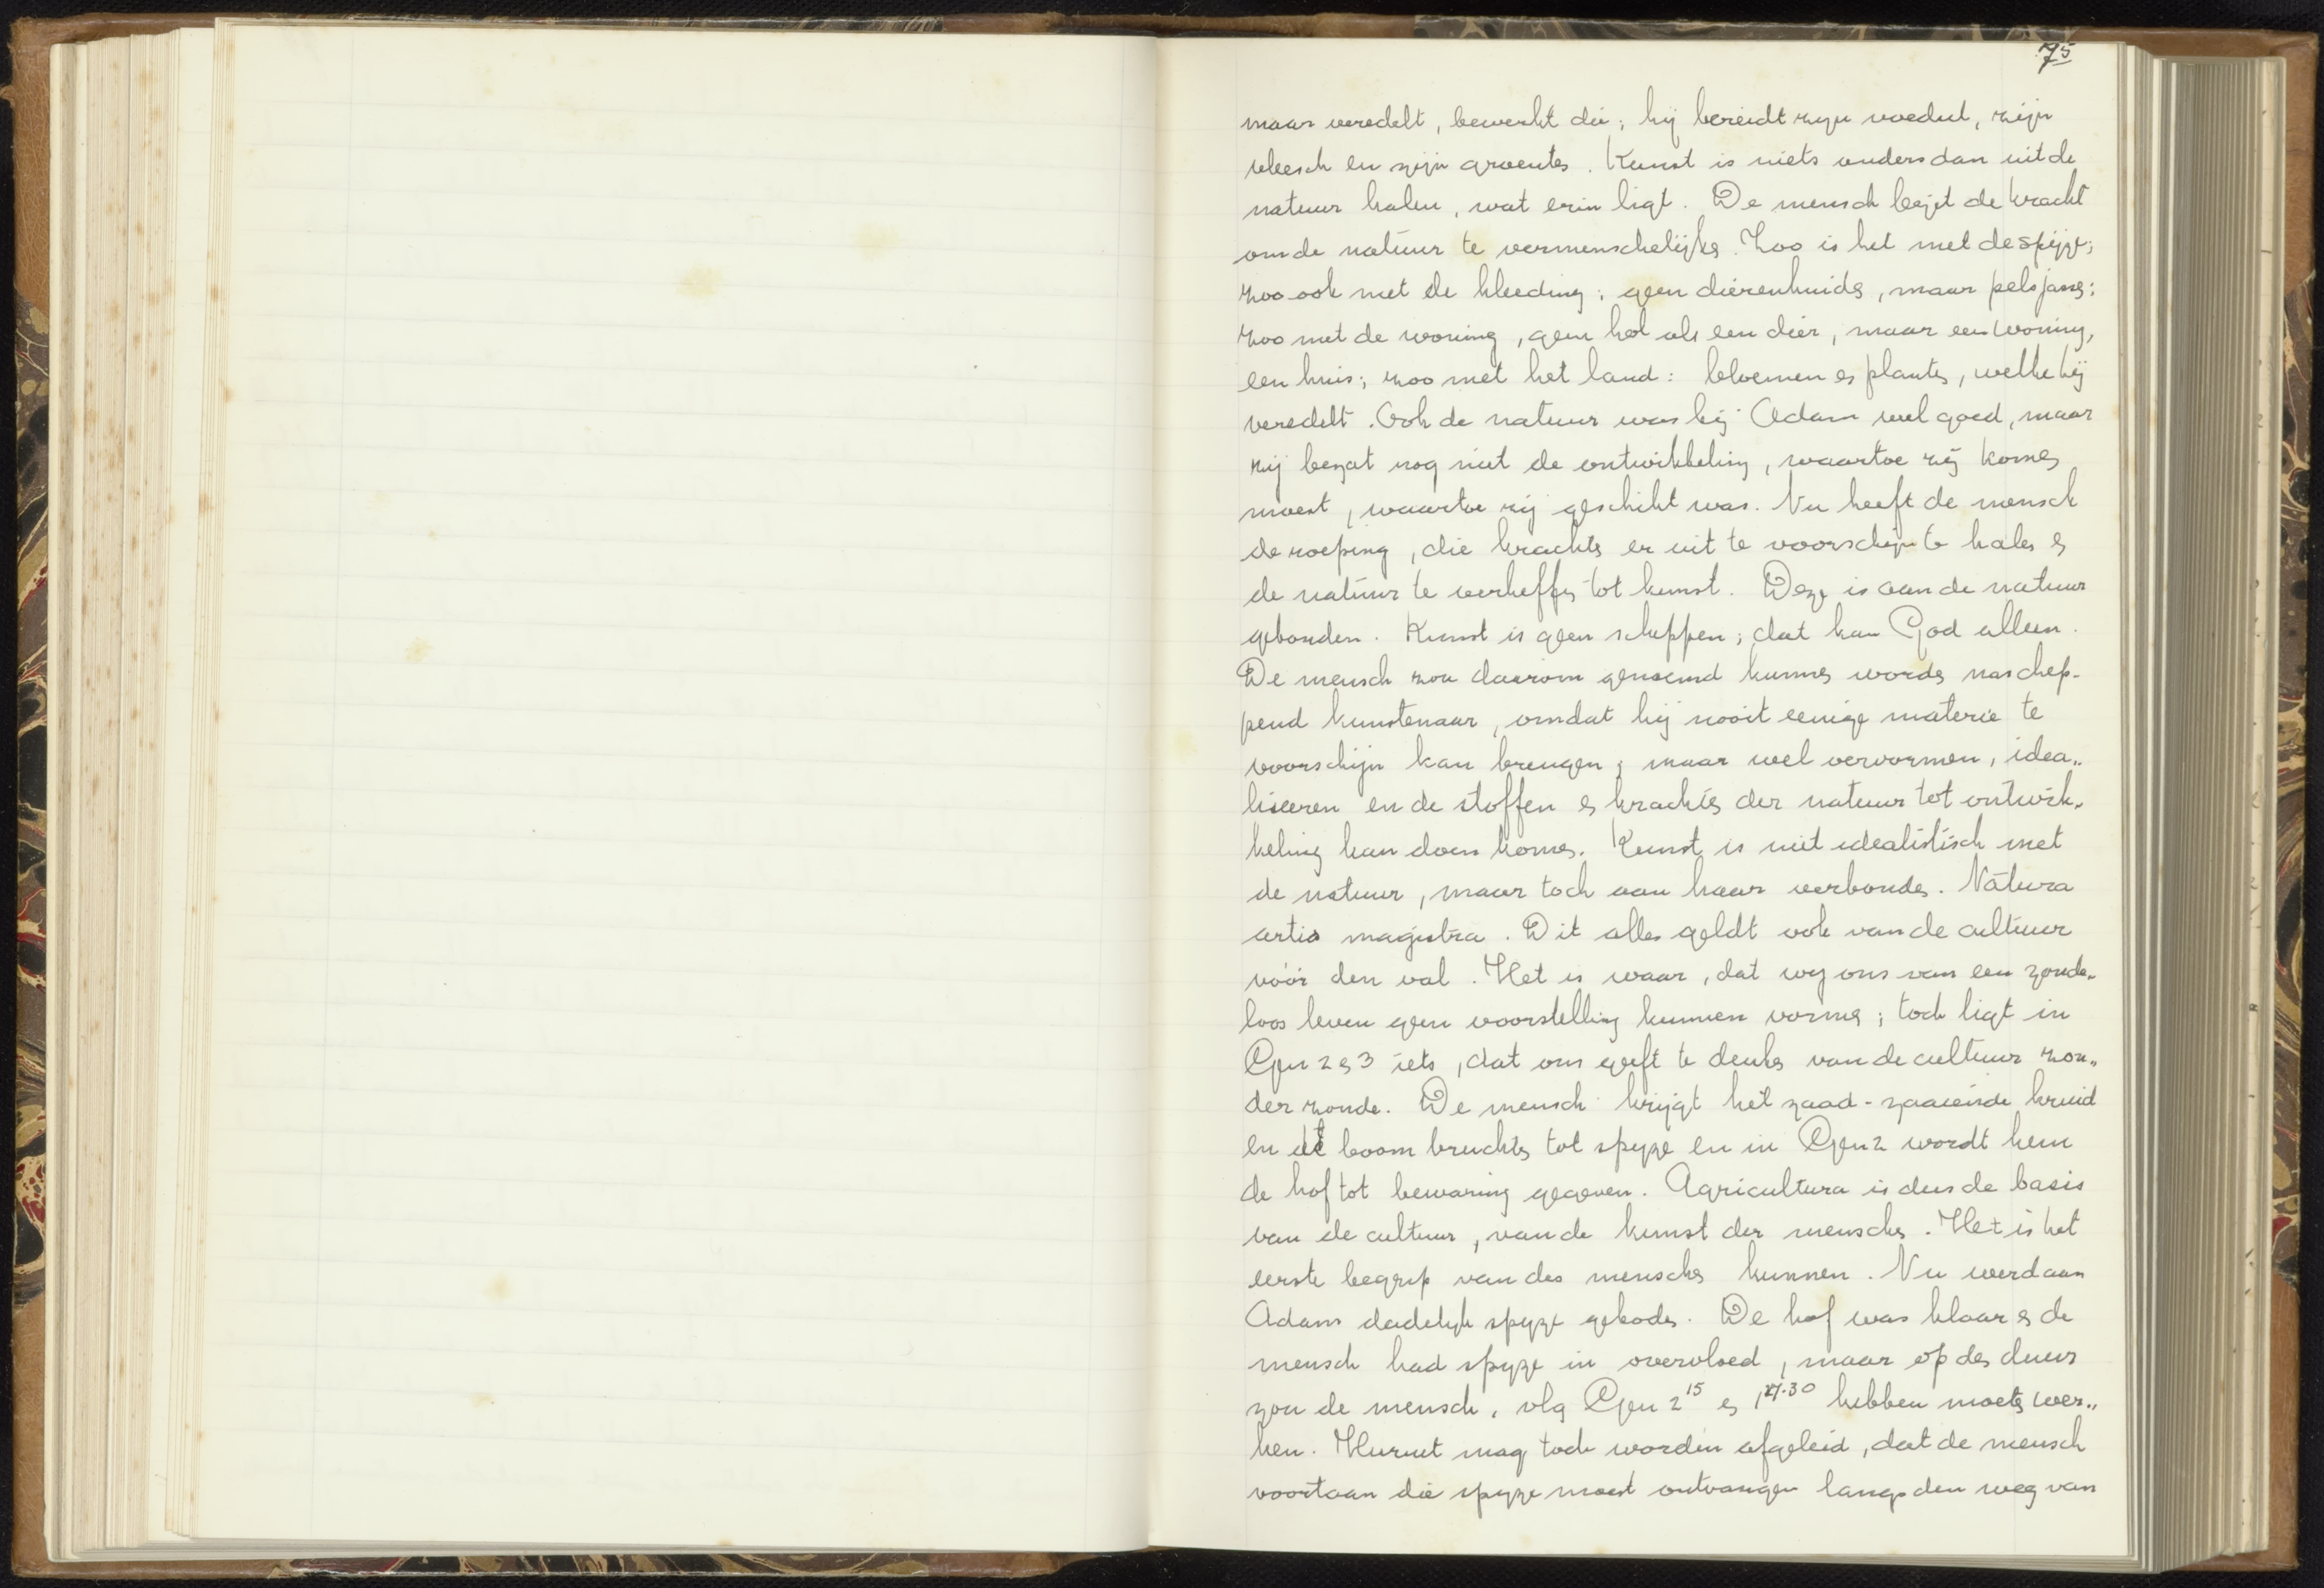 75
maar veredelt, bewerkt die; hij bereidt zijn voedsel, zijn
vleesch en zijn groentes. Kunst is niets anders dan uit de
natuur halen, wat erin ligt. De mensch bezit de kracht
om de natuur te vermenschelijken. Zoo is het met de spijze;
zoo ook met de kleeding; geen dierenhuiden, maar pelsjassen;
zoo met de woning, geen hol als een dier, maar een woning,
een huis; zoo met het land: bloemen en planten, welke hij
veredelt. Ook de natuur was bij Adam wel goed, maar
zij bezat nog niet de ontwikkeling, waartoe zij komen
moest, waartoe zij geschikt was. Nu heeft de mensch
de roeping, die krachten er uit te voorschijn te halen en
de natuur te verheffen tot kunst. Deze is aan de natuur
gebonden. Kunst is geen scheppen; dat kan God alleen.
De mensch zou daarom genoemd kunnen worden naschep-
pend kunstenaar, omdat hij nooit eenige materie te
voorschijn kan brengen, maar wel vervormen, idea„
liseeren en de stoffen en krachten der natuur tot ontwik„
keling kan doen komen. Kunst is niet idealistisch met
de natuur, maar toch aan haar verbonden. Natura
artis magistra. Dit alles geldt ook van de cultuur
vóór den val. Het is waar, dat wij ons van een zonde„
loos leven geen voorstelling kunnen vormen; toch ligt in
Gen 2 en 3 iets, dat ons geeft te denken van de cultuur zon„
der zonde. De mensch krijgt het zaad-zaaiende kruid
en het boom vruchten tot spijze en in Gen 2 wordt hem
de hof tot bewaring gegeven. Agricultura is dus de basis
van de cultuur, van de kunst der menschen. Het is het
eerste begrip van des menschen kunnen. Nu werd aan
Adam dadelijk spijze geboden. De hof was klaar en de
mensch had spijze in overvloed, maar op den duur
zou de mensch, vlg Gen 2 15 en 1 29.30 hebben moeten wer„
ken. Hieruit mag toch worden afgeleid, dat de mensch
voortaan die spijze moest ontvangen langs den weg van